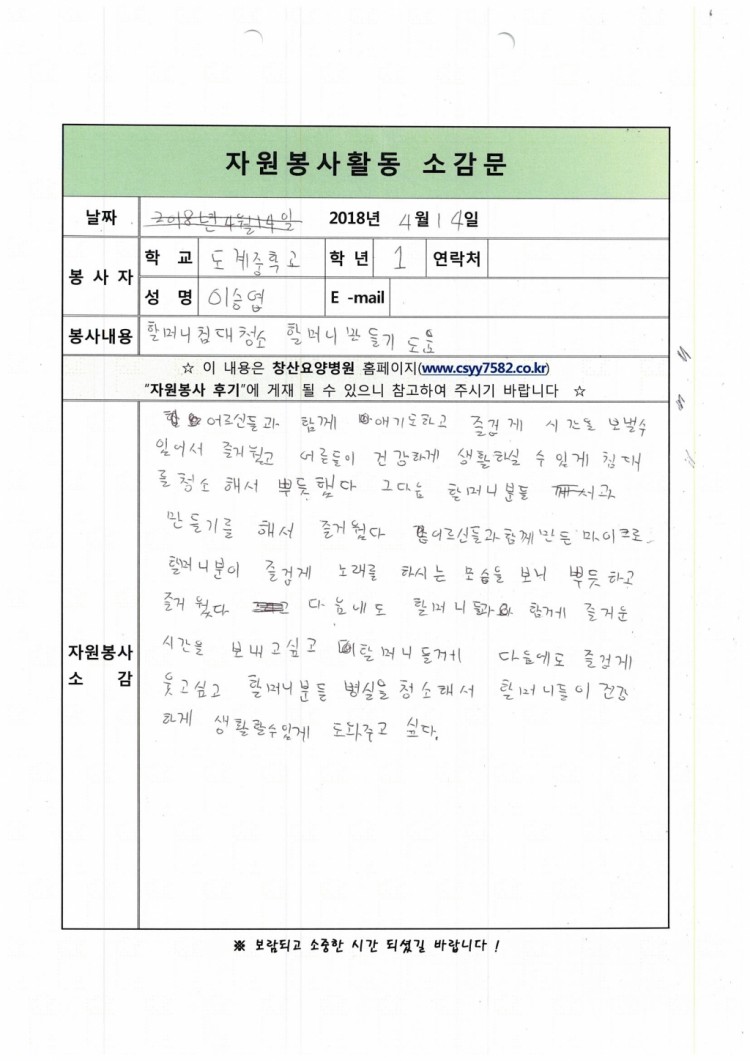 자원봉사활동 소감문
날짜 2018년 4월 14일 2018년 4월 14일
봉사자 학교 도계중학교 학년 1 연락처
성명 이승엽 E-mail
봉사내용 할머니침대청소 할머니만들기 도움
☆ 이 내용은 창산요양병원 홈페이지(www.csyy7582.co.kr)
"자원봉사 후기"에 게재 될 수 있으니 참고하여 주시기 바랍니다 ☆
어르신들과 함께 얘기도하고 즐겁게 시간을 보낼수
있어서 즐거웠고 어른들이 건강하게 생활하실 수 있게 침대
를 청소 해서 뿌듯했다 그다음 할머니분들
만들기를 해서 즐거웠다 어르신들과함께 만든 마이크로
할머니분이 즐겁게 노래를 하시는 모습을 보니 뿌듯하고
즐거웠다 다음에도 할머니들과 함께 즐거운
자원봉사 시간을 보내고싶고 할머니들께 다음에도 즐겁게
소감 웃고싶고 할머니분들 병실을 청소해서 할머니들이 건강
하게 생활할수있게 도와주고 싶다.
※ 보람되고 소중한 시간 되셨길 바랍니다 !